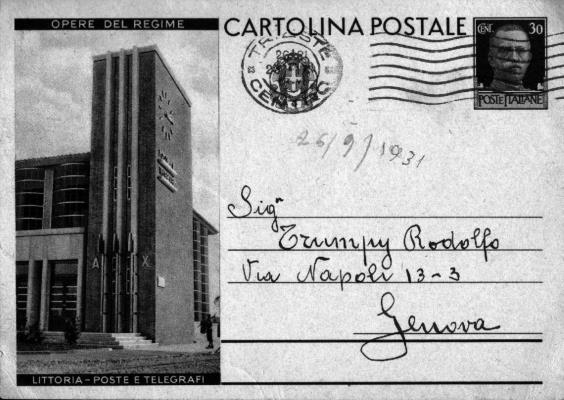 OPERE DEL REGIME
CARTOLINA POSTALE
CENT. 30
POSTE ITALIANE
TRIESTE
CENTRO
26/9/1931
Sigr
Trumpy Rodolfo
Via Napoli 13-3
Genova
A X
LITTORIA - POSTE E TELEGRAFI